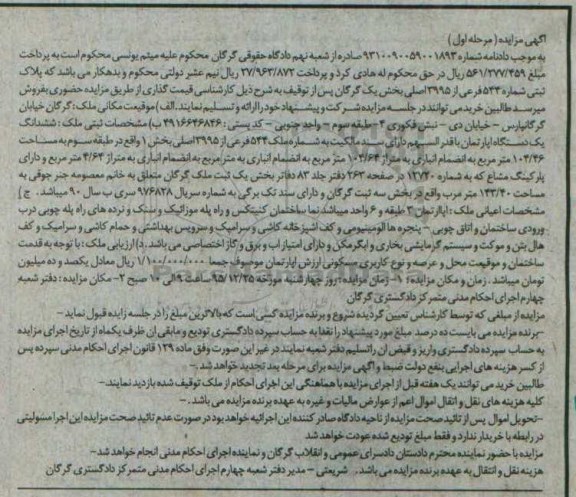 آگهی مزایده ( مرحله اول )
به موجب دادنامه شماره ۹۳۱۰۰۹۰۰۵۹۰۰۱۸۹۳ صادره از شعبه نهم دادگاه حقوقی گرگان محکوم علیه میثم یونسی محکوم است به پرداخت
مبلغ ۵۶۱/۲۷۷/۴۵۹ ریال در حق محکوم له هادی کرد و پرداخت ۲۷/۹۶۳/۸۷۲ ریال نیم عشر دولتی محکوم و بدهکار می باشد که پلاک
ثبتی شماره ۵۳۴ فرعی از ۳۹۹۵ اصلی بخش یک گرگان پس از توقیف به شرح ذیل کارشناسی قیمت گذاری از طریق مزایده حضوری بفروش
میرسد طالبین خرید می توانند در جلسه مزایده شرکت و پیشنهاد خود را ارائه و تسلیم نمایند. الف ) موقعیت مکانی ملک : گرگان خیابان
گرگانپارس – خیابان دی – نبش فکوری ۴ – طبقه سوم – واحد جنوبی – کد پستی : ۴۹۱۶۶۴۶۸۴۶ ب) مشخصات ثبتی ملک : ششدانگ
یک دستگاه آپارتمان با قدرالسهم دارای سند مالکیت به شماره ملک ۵۳۴ فرعی از ۳۹۹۵ اصلی بخش ۱ واقع در طبقه سوم به مساحت
۱۰۴/۴۶ متر مربع به انضمام انباری به متراژ ۱۰۲/۶۴ متر مربع به انضمام انباری به متراژ مربع به انضمام انباری به متراژ ۴/۶۳ متر مربع و دارای
پارکینگ مشاع که به شماره ۱۲۷۲۰ در صفحه ۲۶۲ دفتر جلد ۸۳ دفاتر بخش یک ثبت ملک گرگان متعلق به خانم معصومه جنر جوقی به
مساحت ۱۴۳/۴۰ متر مرب واقع در بخش سه ثبت گرگان و دارای سند تک برگی به شماره سریال ۹۷۶۸۲۸ سری ب سال ۹۰ میباشد . ج )
مشخصات اعیانی ملک : آپارتمان ۳ طبقه و ۶ واحد میباشد نما ساختمان کنیتکس و راه پله موزائیک و سنگ و نرده های راه پله چوبی درب
ورودی ساختمان و اتاق چوبی – پنجره ها آلومینیومی و کف آشپزخانه کاشی و سرامیک و سرویس بهداشتی و حمام کاشی و سرامیک و کف
هال بتن و موکت و سیستم گرمایشی بخاری و آبگرمکن و دارای امتیاز آب و برق و گاز اختصاصی می باشد. د) ارزیابی ملک : با توجه به قدمت
ساختمان و موقعیت محل و عرصه و نوع کاربری مسکونی ارزش آپارتمان موصوف جمعا ۱/۱۰۰/۰۰۰/۰۰۰ ریال معادل یکصد و ده میلیون
تومان میباشد . زمان و مکان مزایده : ۱– زمان مزایده : روز چهارشنبه مورخه ۹۵/۱۲/۲۵ ساعت ۹ الی ۱۰ صبح ۲– مکان مزایده : دفتر شعبه
چهارم اجرای احکام مدنی متمرکز دادگستری گرگان
مزایده از مبلغی که توسط کارشناس تعیین گردیده شروع و برنده مزایده کسی است که بالاترین مبلغ را در جلسه زایده قبول نماید –
–برنده مزایده می بایست ده درصد مبلغ مورد پیشنهاد را نقدا به حساب سپرده دادگستری تودیع و مابقی آن ظرف یکماه از تاریخ اجرای مزایده
به حساب سپرده دادگستری واریز و قبض آن را تسلیم دفتر شعبه نمایند در غیر این صورت وفق ماده ۱۲۹ قانون اجرای احکام مدنی سپرده پس
از کسر هزینه های اجرایی بنفع دولت ضبط و آگهی مزایده برای مرحله بعد تجدید خواهد شد. –
طالبین خرید می توانند یک هفته قبل از اجرای مزایده با هماهنگی این اجرای احکام از ملک توقیف شده بازدید نمایند. –
کلیه هزینه های نقل و انتقال اموال اعم از عوارض مالیات و غیره به عهده برنده مزایده می باشد. –
–تحویل اموال پس از تائید صحت مزایده از ناحیه دادگاه صادر کننده این اجرائیه خواهد بود در صورت عدم تائید صحت مزایده این اجرا مسئولیتی
در رابطه با خریدار ندارد و فقط مبلغ تودیع شده عودت خواهد شد
مزایده با حضور نماینده محترم دادستان دادسرای عمومی و انقلاب گرگان و نماینده اجرای احکام مدنی انجام خواهد شد –
هزینه نقل و انتقال به عهده برنده مزایده می باشد . شریعتی – مدیر دفتر شعبه چهارم اجرای احکام مدنی متمرکز دادگستری گرگان